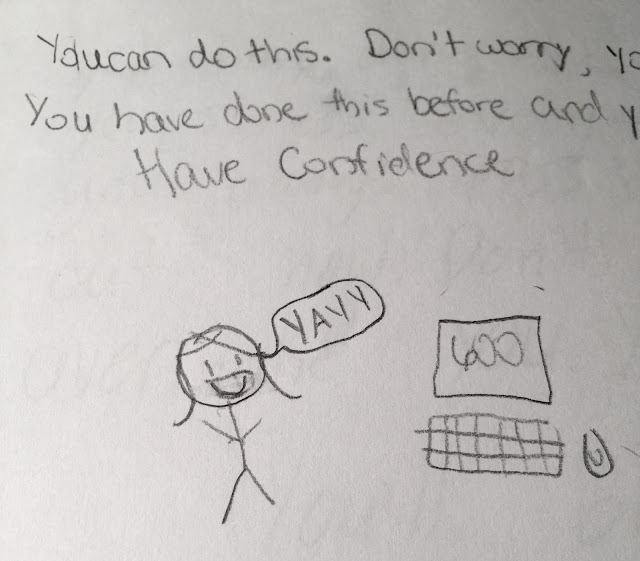 You can do this. Don't worry,
You have done this before and
Have Confidence
YAYY
600